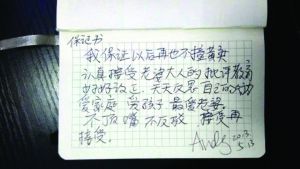 保证书
我保证以后再也不撞黄卖
认真接受老婆大人的批评教育
好好改正 天天反思自己的
爱家庭 爱孩子 最爱老婆
不顶嘴 不反驳 接受再
接受。
Andy
2013
5.13